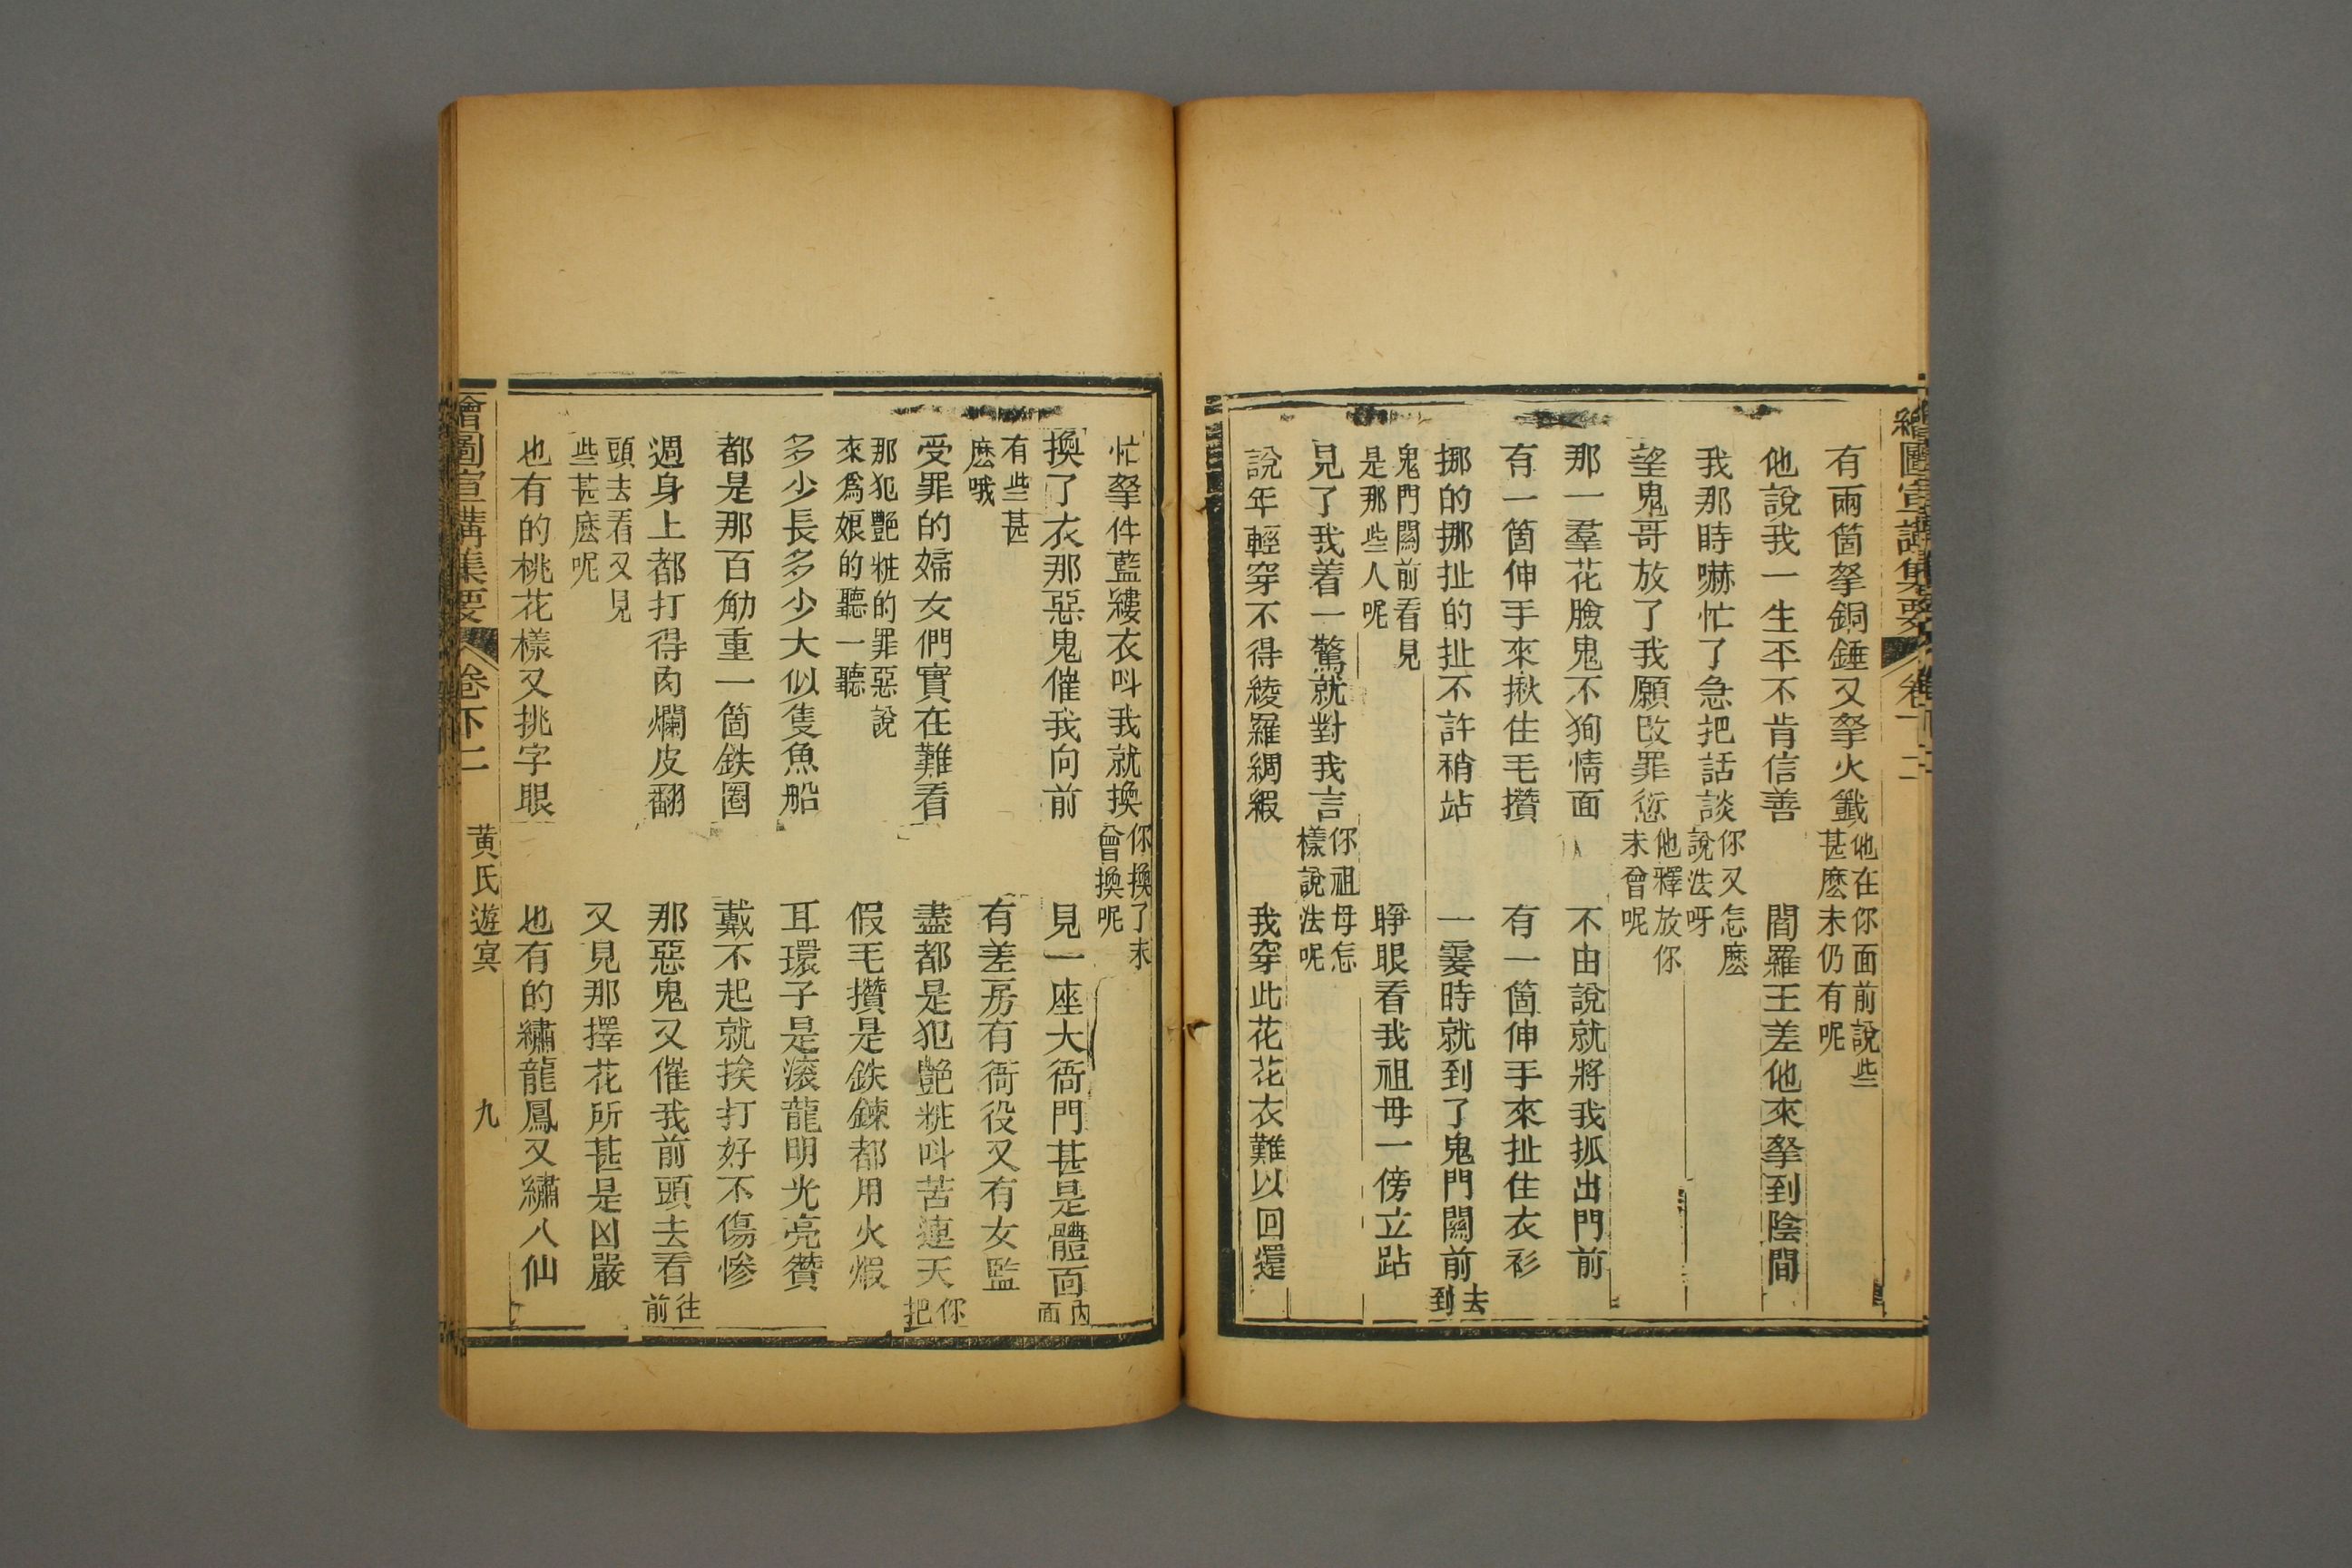 繪圖宣講集要 卷下二
有兩箇拏銅錘又拏火籤 他在你面前說些甚麽未仍有呢
他說我一生不肯信善 閻羅王差他來拏到陰間
我那時嚇忙了急把話談 你又怎麽說法呀
望鬼哥放了我願改罪愆 他釋放你未曾呢
那一羣花臉鬼不狥情面 不由說就將我抓出門前
有一箇伸手來揪住毛攢 有一箇伸手來扯住衣衫
挪的挪扯的扯不許稍站 一霎時就到了鬼門關前 去到
鬼門關前看見是那些人呢 睜眼看我祖母一傍立跕
見了我着一驚就對我言 你祖母怎樣說法呢
說年輕穿不得綾羅綢緞 我穿此花花衣難以回還
忙拏件藍縷衣呌我就換 你換了未曾換呢
換了衣那惡鬼催我向前 見一座大衙門甚是體面 內面
有些甚麽哦 有差房有衙役又有女監
受罪的婦女們實在難看 盡都是犯艷粧呌苦連天 你把
那犯艷粧的罪惡說來爲娘的聽一聽 假毛攢是鉄鍊都用火煆
多少長多少大似隻魚船 耳環子是滚龍明光亮鑽
都是那百觔重一箇鉄圈 戴不起就挨打好不傷慘
週身上都打得肉爛皮翻 那惡鬼又催我前頭去看 往前
頭去看又見些甚麽呢 又見那擇花所甚是凶嚴
也有的桃花樣又挑字眼 也有的繡龍鳳又繡八仙
繪圖宣講集要 卷下二 黄氏遊冥 九